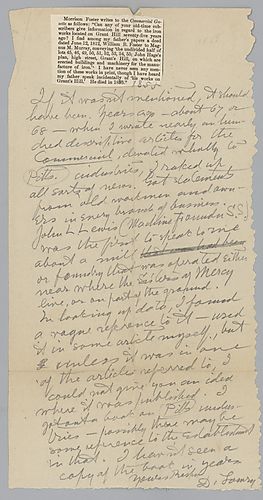 Morrison Foster writes to the Commercial Ga-
zette as follows: "Can any of your old-time sub-
scribers give information in regard to the iron
works located on Grant Hill seventy-five years
ago? I find among my father's papers a deed
dated June 12, 1812, William B. Foster to Mag-
nus M. Murray, conveying 'the undivided half of
lots 45, 46, 49, 50, 51, 52, 53, 54, 55, John Hague
plan, high street, Grant's Hill, on which are
erected buildings and machinery for the manu-
facture of iron.' I have never seen any men-
tion of these works in print, though I have heard
my father speak incidentally of 'his works on
Grant's Hill.' He died in 1855."
1855
If it wasn't mentioned, it should
have been. Years ago - about 67 or
68 - when I wrote nearly an hun-
dred descriptive articles for the
Commercial, devoted wholly to
Pitts. industries, I raked up
all sorts of news. Got statements
from old workmen and own-
ers in every branch of business.
John L. Lewis (Machine Founder S.S.)
was the first to speak to me
about a mill
or foundry that was operated either
near where the Sisters of Mercy
line, or on part of the ground.
In looking up data, I found
a vague reference to it - used
it in some article myself, but
unless it was in one
of the articles referred to, I
could not give you an idea
where it was published. I
got out a book on Pitts indus-
tries - possibly there may be
some reference to the establishment
in that. I haven't seen a
copy of the book in years
Yours truly
D. Lowry